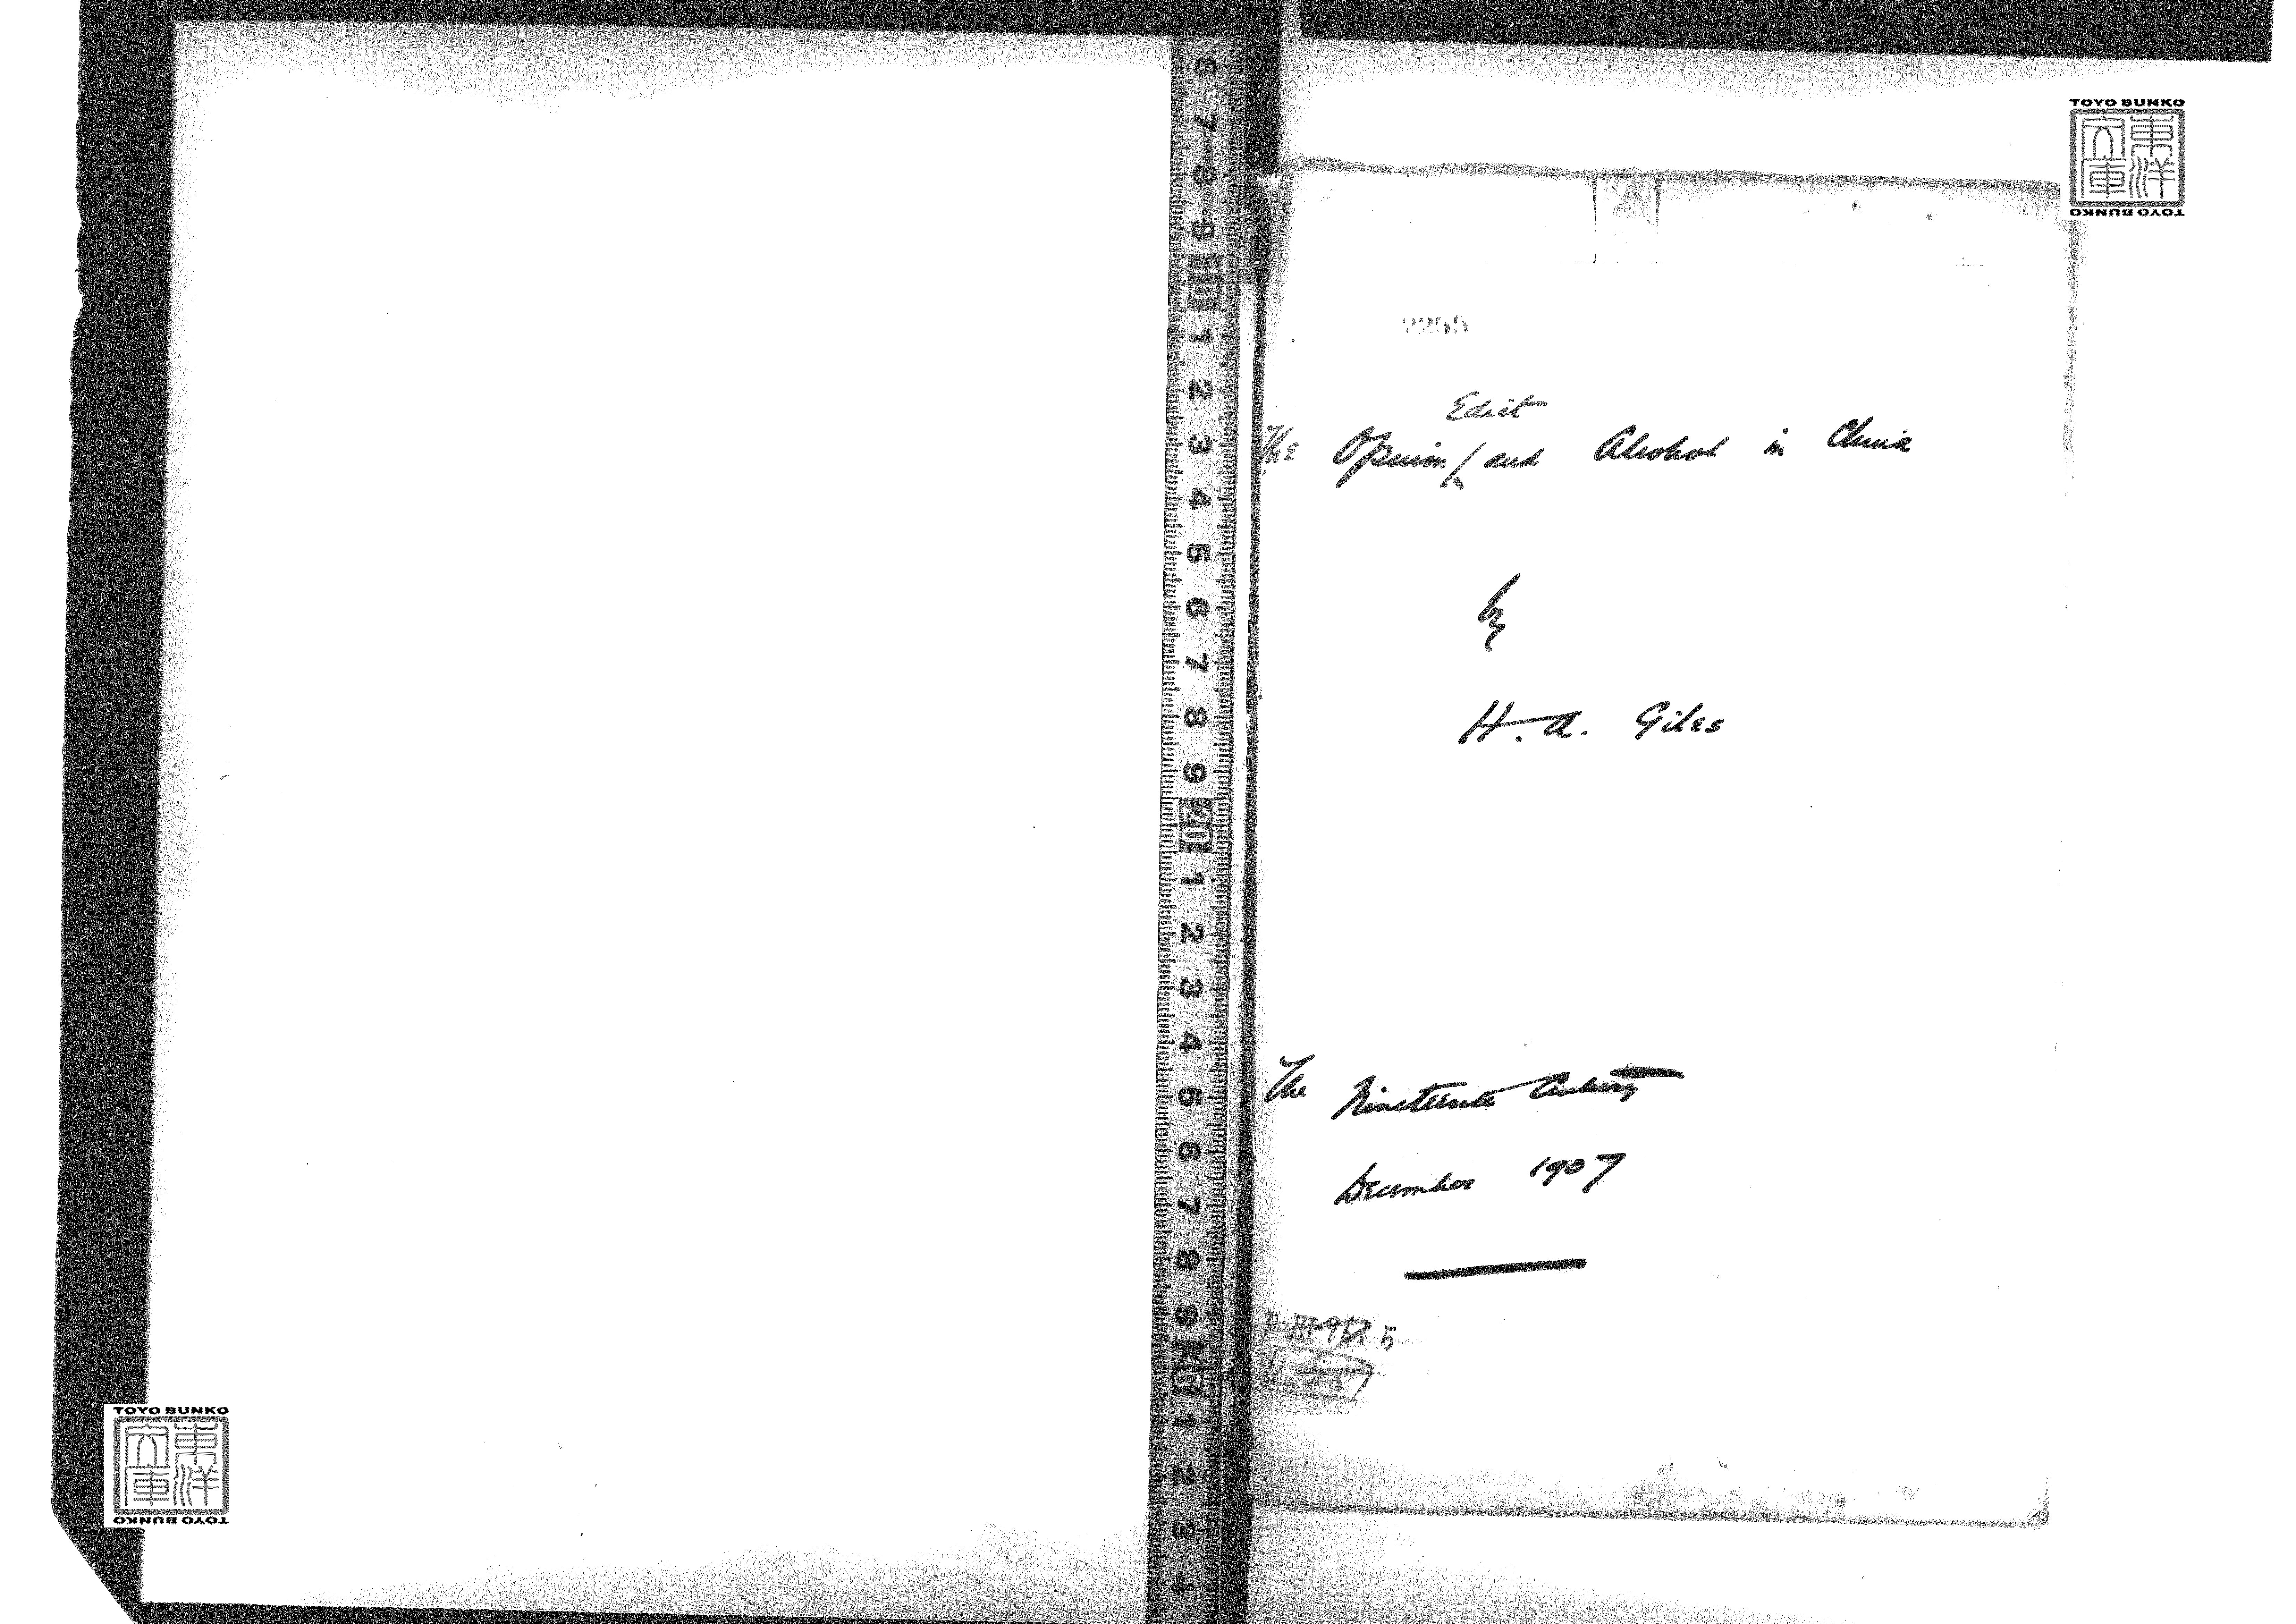 Edict
The Opium / and Alcohol in China
by
H. A. Giles
The Nineteenth Century
December 1907
P-III-95. 5
L. 25
TOYO BUNKO
東洋文庫
TOYO BUNKO
TOYO BUNKO
東洋文庫
TOYO BUNKO
6
7
8
9
10
1
2
3
4
5
6
7
8
9
20
1
2
3
4
5
6
7
8
9
30
1
2
3
4
JAPAN